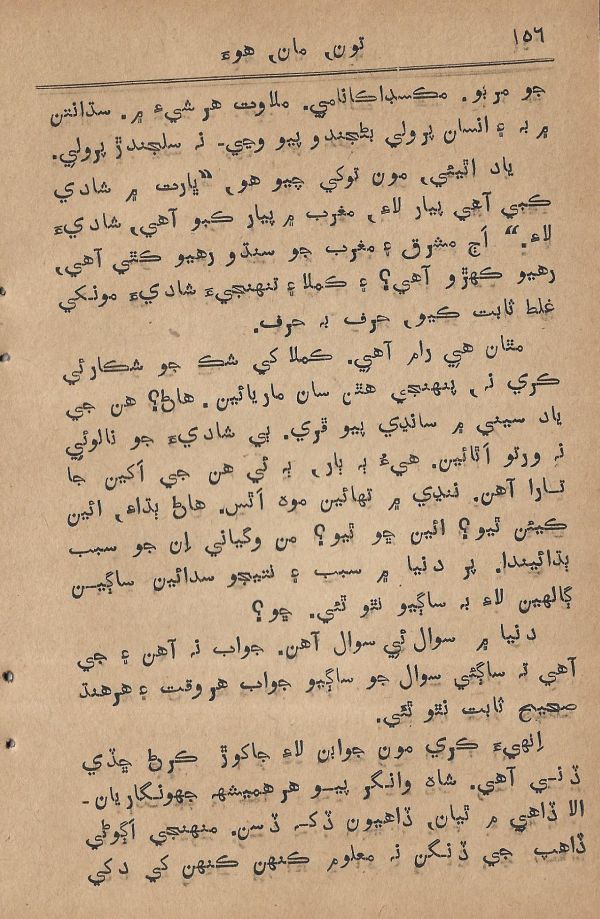 ١٥٦
تون, مان, هوءَ
جو مربو. مڪسڊاڪانامي. ملاوت هر شيءِ ۾. سڌانتن
۾ به ۽ انسان پرولي بڻجندو پيو وڃي- نه سلجندڙ پرولي.
ياد اٿيئي, مون توکي چيو هو, “ڀارت ۾ شادي
ڪبي آهي پيار لاءِ, مغرب ۾ پيار ڪبو آهي, شاديءَ
لاءِ.” اَڄ مشرق ۽ مغرب جو سنڌو رهيو ڪٿي آهي,
رهيو ڪهڙو آهي؟ ۽ ڪملا ۽ تنهنجيءَ شاديءَ مونکي
غلط ثابت ڪيو, حرف به حرف.
مٿان هي رام آهي. ڪملا کي شڪ جو شڪار ئي
ڪري نه, پنهنجي هٿن سان ماريائين. هاڻ؟ هن جي
ياد سيني ۾ سانڍي پيو ڦري. ٻي شاديءَ جو نالوئي
نه ورتو اَٿائين. هيءُ به ٻار, به ئي هن جي اَکين جا
تارا آهن. ننڍي ۾ تهائين موه اَٿس. هاڻ ٻڌاءِ, ائين
ڪيئن ٿيو؟ ائين ڇو ٿيو؟ من وگياني اِن جو سبب
ٻڌائيندا. پر دنيا ۾ سبب ۽ نتيجو سدائين ساڳيـن
ڳالهين لاءِ به ساڳيو نٿو ٿئي. ڇو؟
دنيا ۾ سوال ئي سوال آهن. جواب نه آهن ۽ جي
آهي ته ساڳئي سوال جو ساڳيو جواب هر وقت ۽ هرهنڌ
صحيح ثابت نٿو ٿئي.
اِنهيءَ ڪري مون جوابن لاءِ جاکوڙ ڪرڻ ڇڏي
ڏني آهي. شاه وانگر پيو هر هميشهه جهونگاريان-
الا ڏاهي ۾ ٿيان, ڏاهيون ڏکہ ڏسن. منهنجي اَڳوڻي
ڏاهپ جي ڏنگن نہ معلوم ڪنهن ڪنهن کي دکي